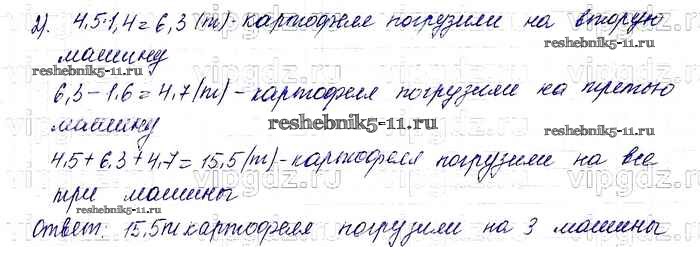 2). 4,5·1,4=6,3(т)-картофеля погрузили на вторую
машину
reshebnik5-11.ru reshebnik5-11.ru
6,3-1,6=4,7(т)-картофеля погрузили на третью
машину
reshebnik5-11.ru reshebnik5-11.ru
4,5+6,3+4,7=15,5(т)-картофеля погрузили на все
три машины
reshebnik5-11.ru
Ответ: 15,5т картофеля погрузили на 3 машины